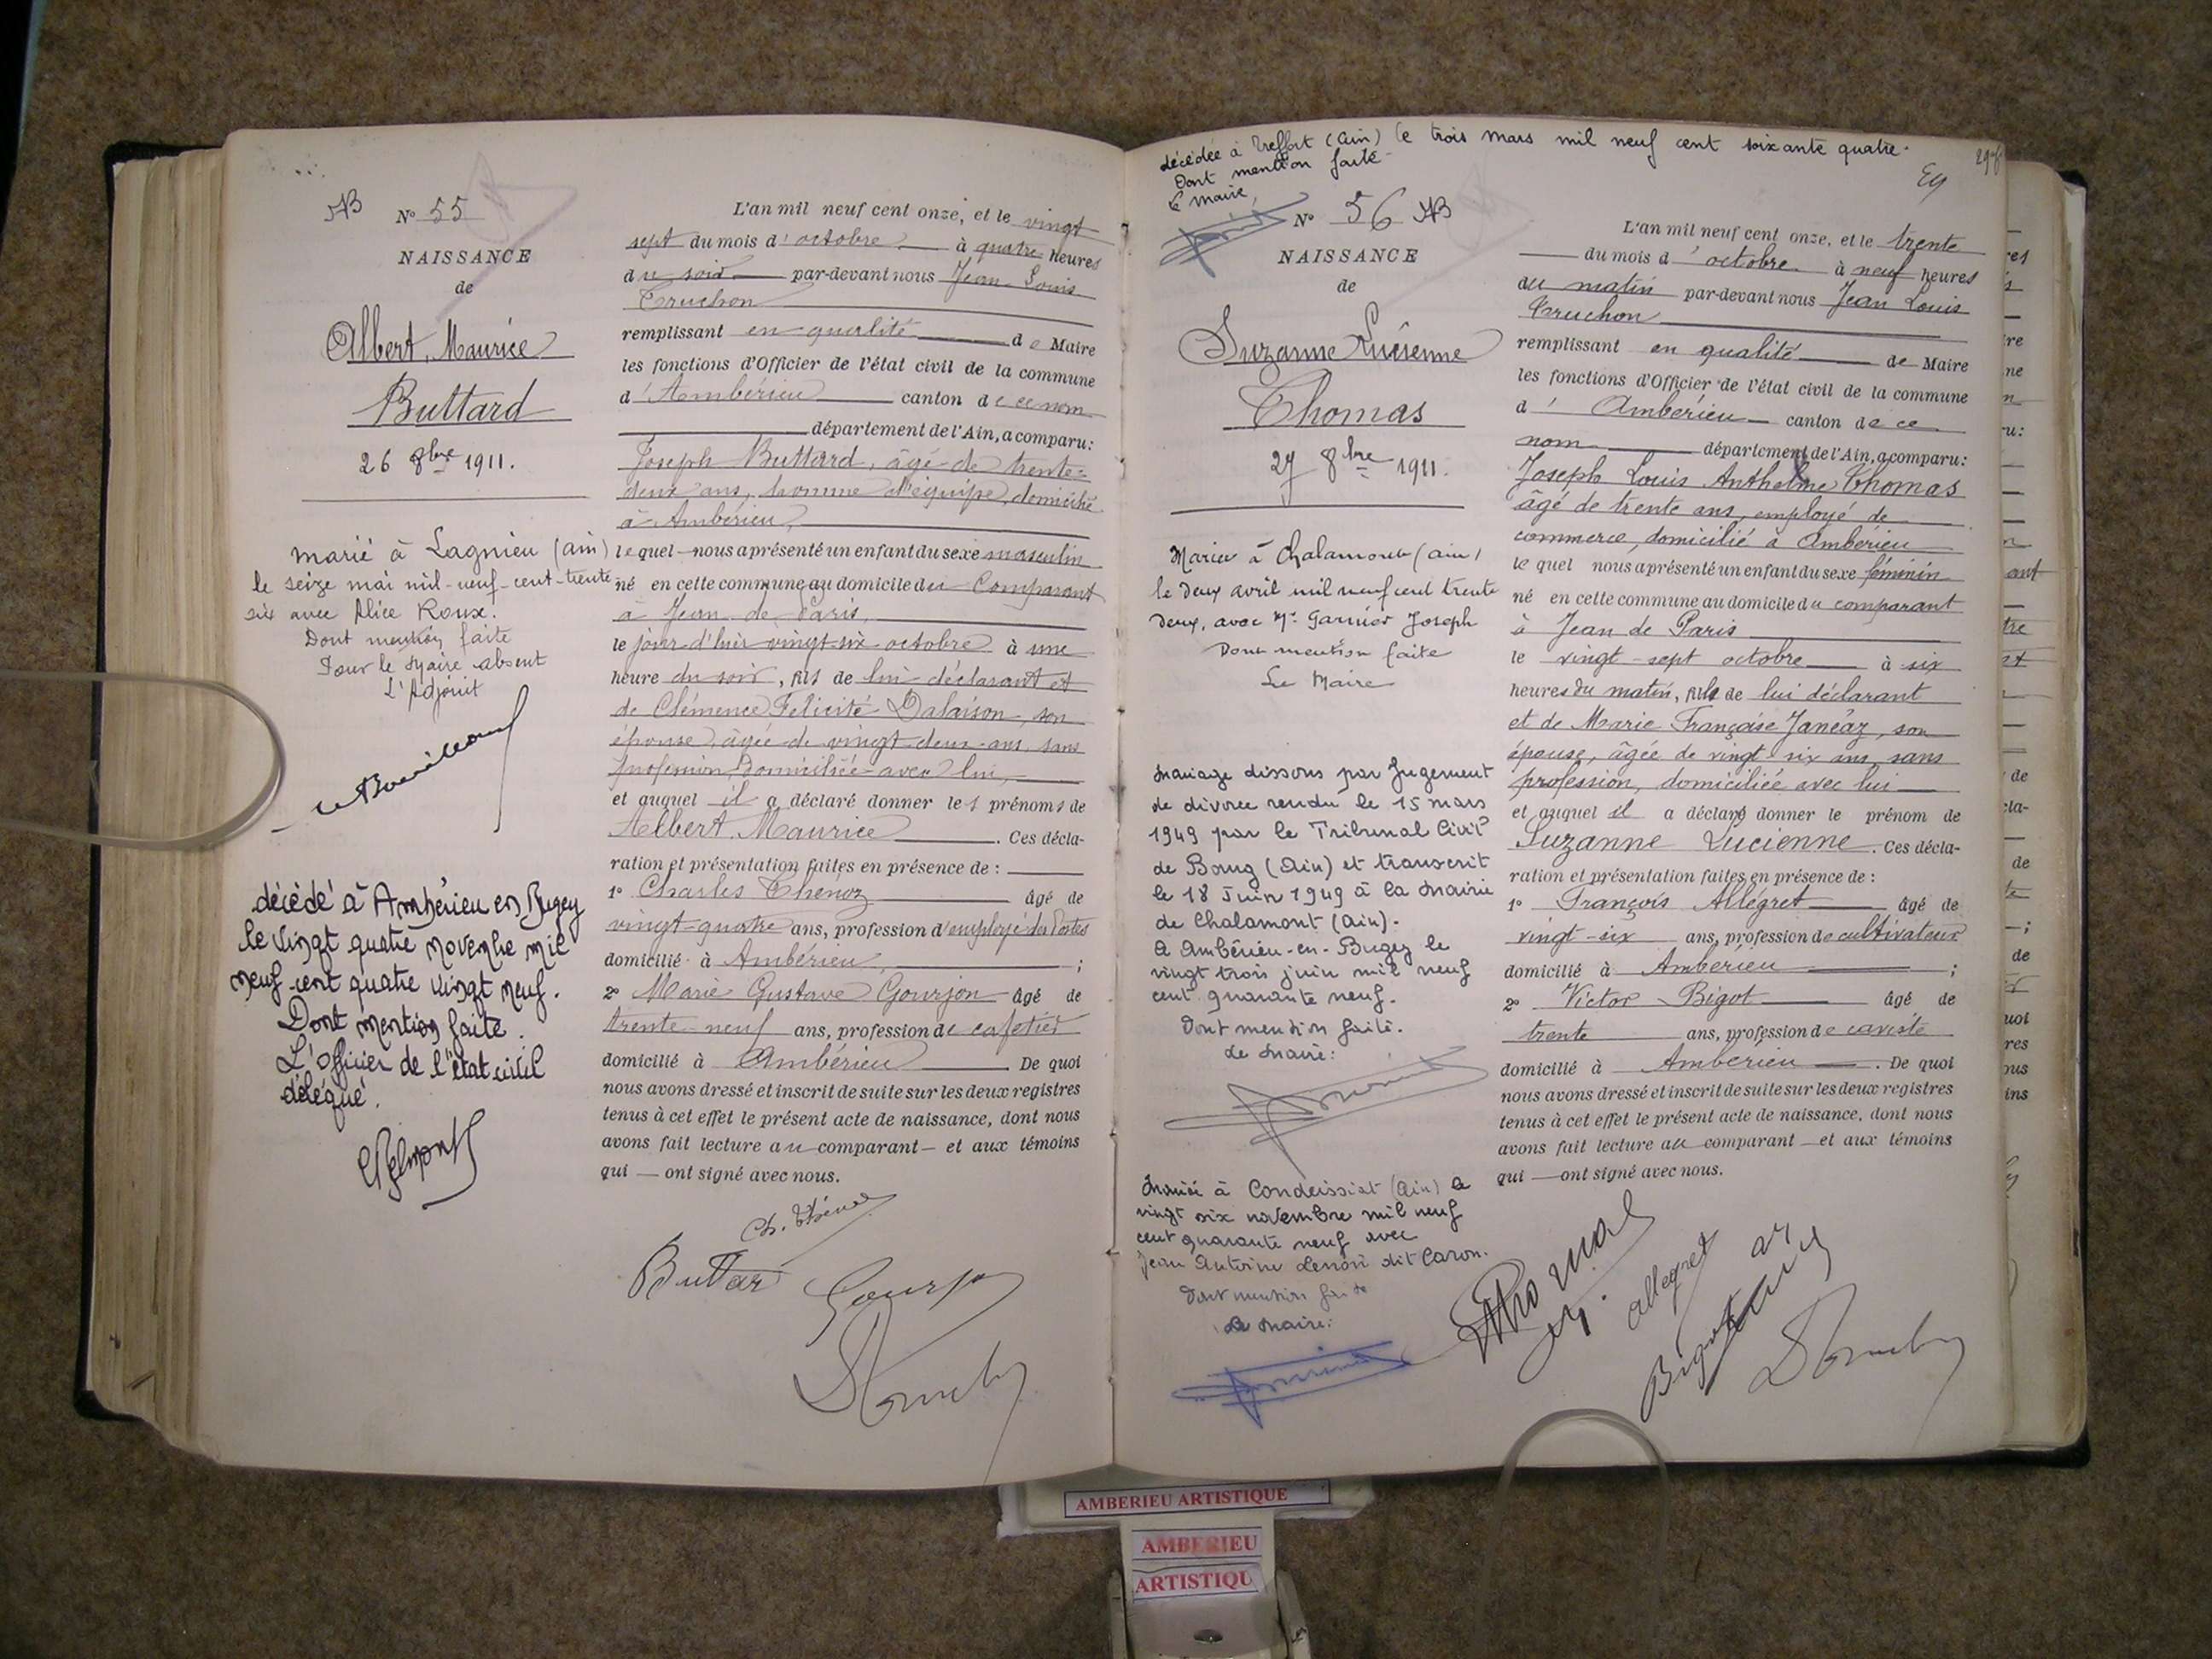 N° 55
NAISSANCE
de
Albert, Maurice
Buttard
26 8bre 1911.
marié à Lagnieu (ain)
le seize mai mil-neuf-cent-trente
six avec Alice Roux.
Dont mention faite
Pour le Maire absent
L'Adjoint
décédé à Ambérieu en Bugey
le vingt quatre novembre mil
neuf cent quatre vingt neuf.
Dont mention faite.
L'officier de l'état civil
délégué.
L'an mil neuf cent onze, et le vingt
sept du mois d'octobre à quatre heures
du soir par-devant nous Jean Louis
Truchon
remplissant en qualité de Maire
les fonctions d'Officier de l'état civil de la commune
d'Ambérieu canton de ce nom
département de l'Ain, a comparu:
Joseph Buttard, âgé de trente-
deux ans, homme d'équipe, domicilié
à Ambérieu,
lequel nous a présenté un enfant du sexe masculin
né en cette commune au domicile du Comparant
à Jean de Paris,
le jour d'hier vingt-six octobre à une
heure du soir, fils de lui déclarant et
de Clémence Félicité Dalaison, son
épouse, âgée de vingt deux ans, sans
profession, domiciliée avec lui,
et auquel il a déclaré donner les prénoms de
Albert Maurice. Ces décla-
ration et présentation faites en présence de :
1° Charles Thénoz âgé de
vingt-quatre ans, profession d'employé des Postes
domicilié à Ambérieu, ;
2° Marie Gustave Gourjon âgé de
trente neuf ans, profession de cafetier
domicilié à Ambérieu De quoi
nous avons dressé et inscrit de suite sur les deux registres
tenus à cet effet le présent acte de naissance, dont nous
avons fait lecture au comparant — et aux témoins
qui — ont signé avec nous.
Ch. Thénoz
Buttard
décédée à Treffort (Ain) le trois mars mil neuf cent soixante quatre.
Dont mention faite
Le maire,
N° 56
NAISSANCE
de
Suzanne Lucienne
Thomas
27 8bre 1911.
Mariée à Chalamont (ain)
le deux avril mil neuf cent trente
deux, avec Mr Garnier Joseph
Dont mention faite
Le Maire
Mariage dissous par Jugement
de divorce rendu le 15 mars
1949 par le Tribunal Civil
de Bourg (Ain) et transcrit
le 18 Juin 1949 à la Mairie
de Chalamont (Ain).
A Ambérieu-en-Bugey le
vingt trois juin mil neuf
cent quarante neuf.
Dont mention faite.
Le Maire:
Mariée à Condeissiat (Ain) le
vingt six novembre mil neuf
cent quarante neuf avec
Jean Antoine Lenoir dit Caron.
Dont mention faite
Le Maire:
L'an mil neuf cent onze, et le trente
du mois d'octobre à neuf heures
du matin par-devant nous Jean Louis
Truchon
remplissant en qualité de Maire
les fonctions d'Officier de l'état civil de la commune
d'Ambérieu canton de ce
nom département de l'Ain, a comparu:
Joseph Louis Anthelme Thomas
âgé de trente ans, employé de
commerce, domicilié à Ambérieu
lequel nous a présenté un enfant du sexe féminin
né en cette commune au domicile du comparant
à Jean de Paris
le vingt-sept octobre à six
heures du matin, fille de lui déclarant
et de Marie Françoise Janéaz, son
épouse, âgée de vingt six ans, sans
profession, domiciliée avec lui
et auquel il a déclaré donner le prénom de
Suzanne Lucienne. Ces décla-
ration et présentation faites en présence de :
1° François Allégret âgé de
vingt-six ans, profession de cultivateur
domicilié à Ambérieu ;
2° Victor Bigot âgé de
trente ans, profession de caviste
domicilié à Ambérieu. De quoi
nous avons dressé et inscrit de suite sur les deux registres
tenus à cet effet le présent acte de naissance, dont nous
avons fait lecture au comparant — et aux témoins
qui — ont signé avec nous.
Thomas
allegret
Bigot
AMBERIEU ARTISTIQUE
AMBERIEU
ARTISTIQU